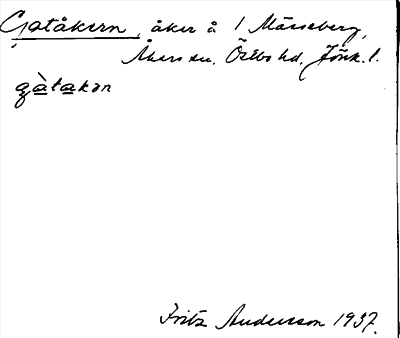 Gatåkern, åker å 1 Mässeberg,
Åkers sn. Östbo hd. Jönk. l.
gàtakan
Fritz Andersson 1937.